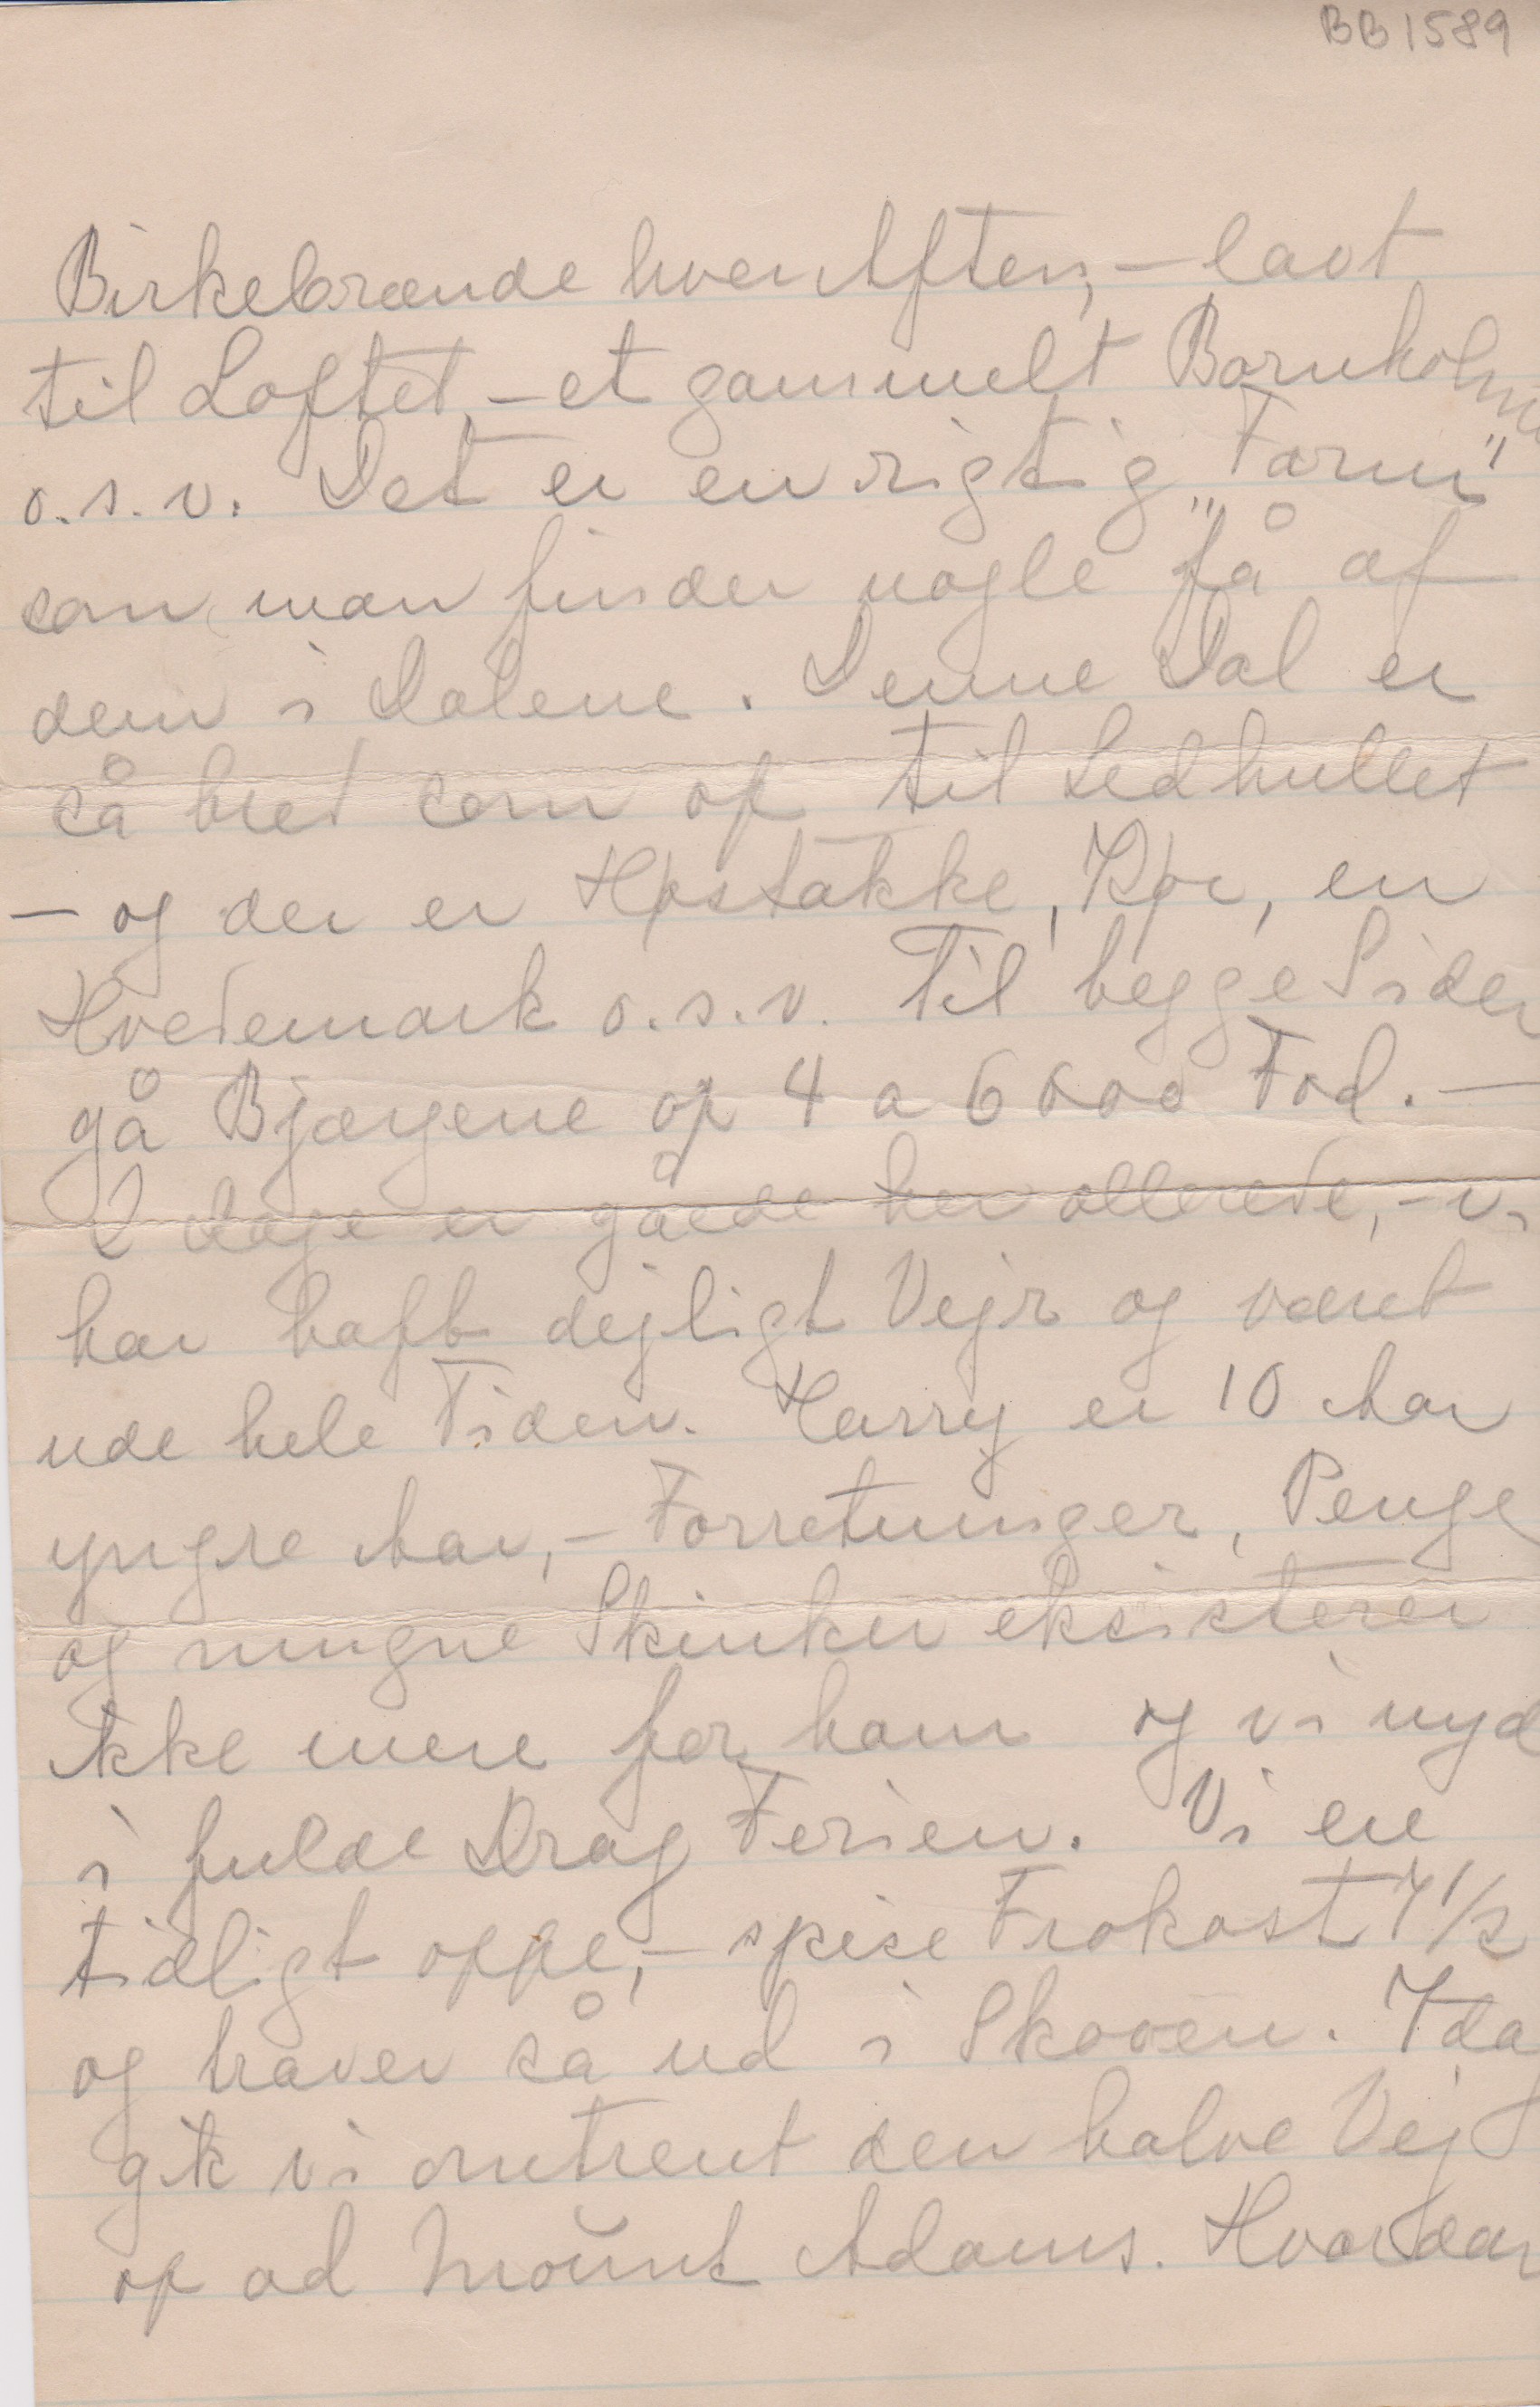 BB1589
Birkebrænde hver Aften, – lavt
til Loftet, – et gammelt Bornholmer
o.s.v. Det er en rigtig „Farm"
som man finder nogle få af
dem i Dalene. Denne Dal er
så bred som op til Ledhullet
– og der er Høstakke, Køer, en
Hvedemark o.s.v. Til begge Sider
gå Bjærgene op 4 a 6000 Fod. –
2 Dage er gåede her allerede, – vi
har haft dejligt Vejr og været
ude hele Tiden. Harry er 10 Aar
yngre Aar, – Forretninger, Penge
og mugne Skinker eksisterer
ikke mere for ham og vi nyder
i fulde Drag Ferien. Vi ere
tidligt oppe, – spise Frokost 7½
og traver så ud i Skoven. Idag
gik vi omtrent den halve Vej
op ad Mount Adams. Hvordan